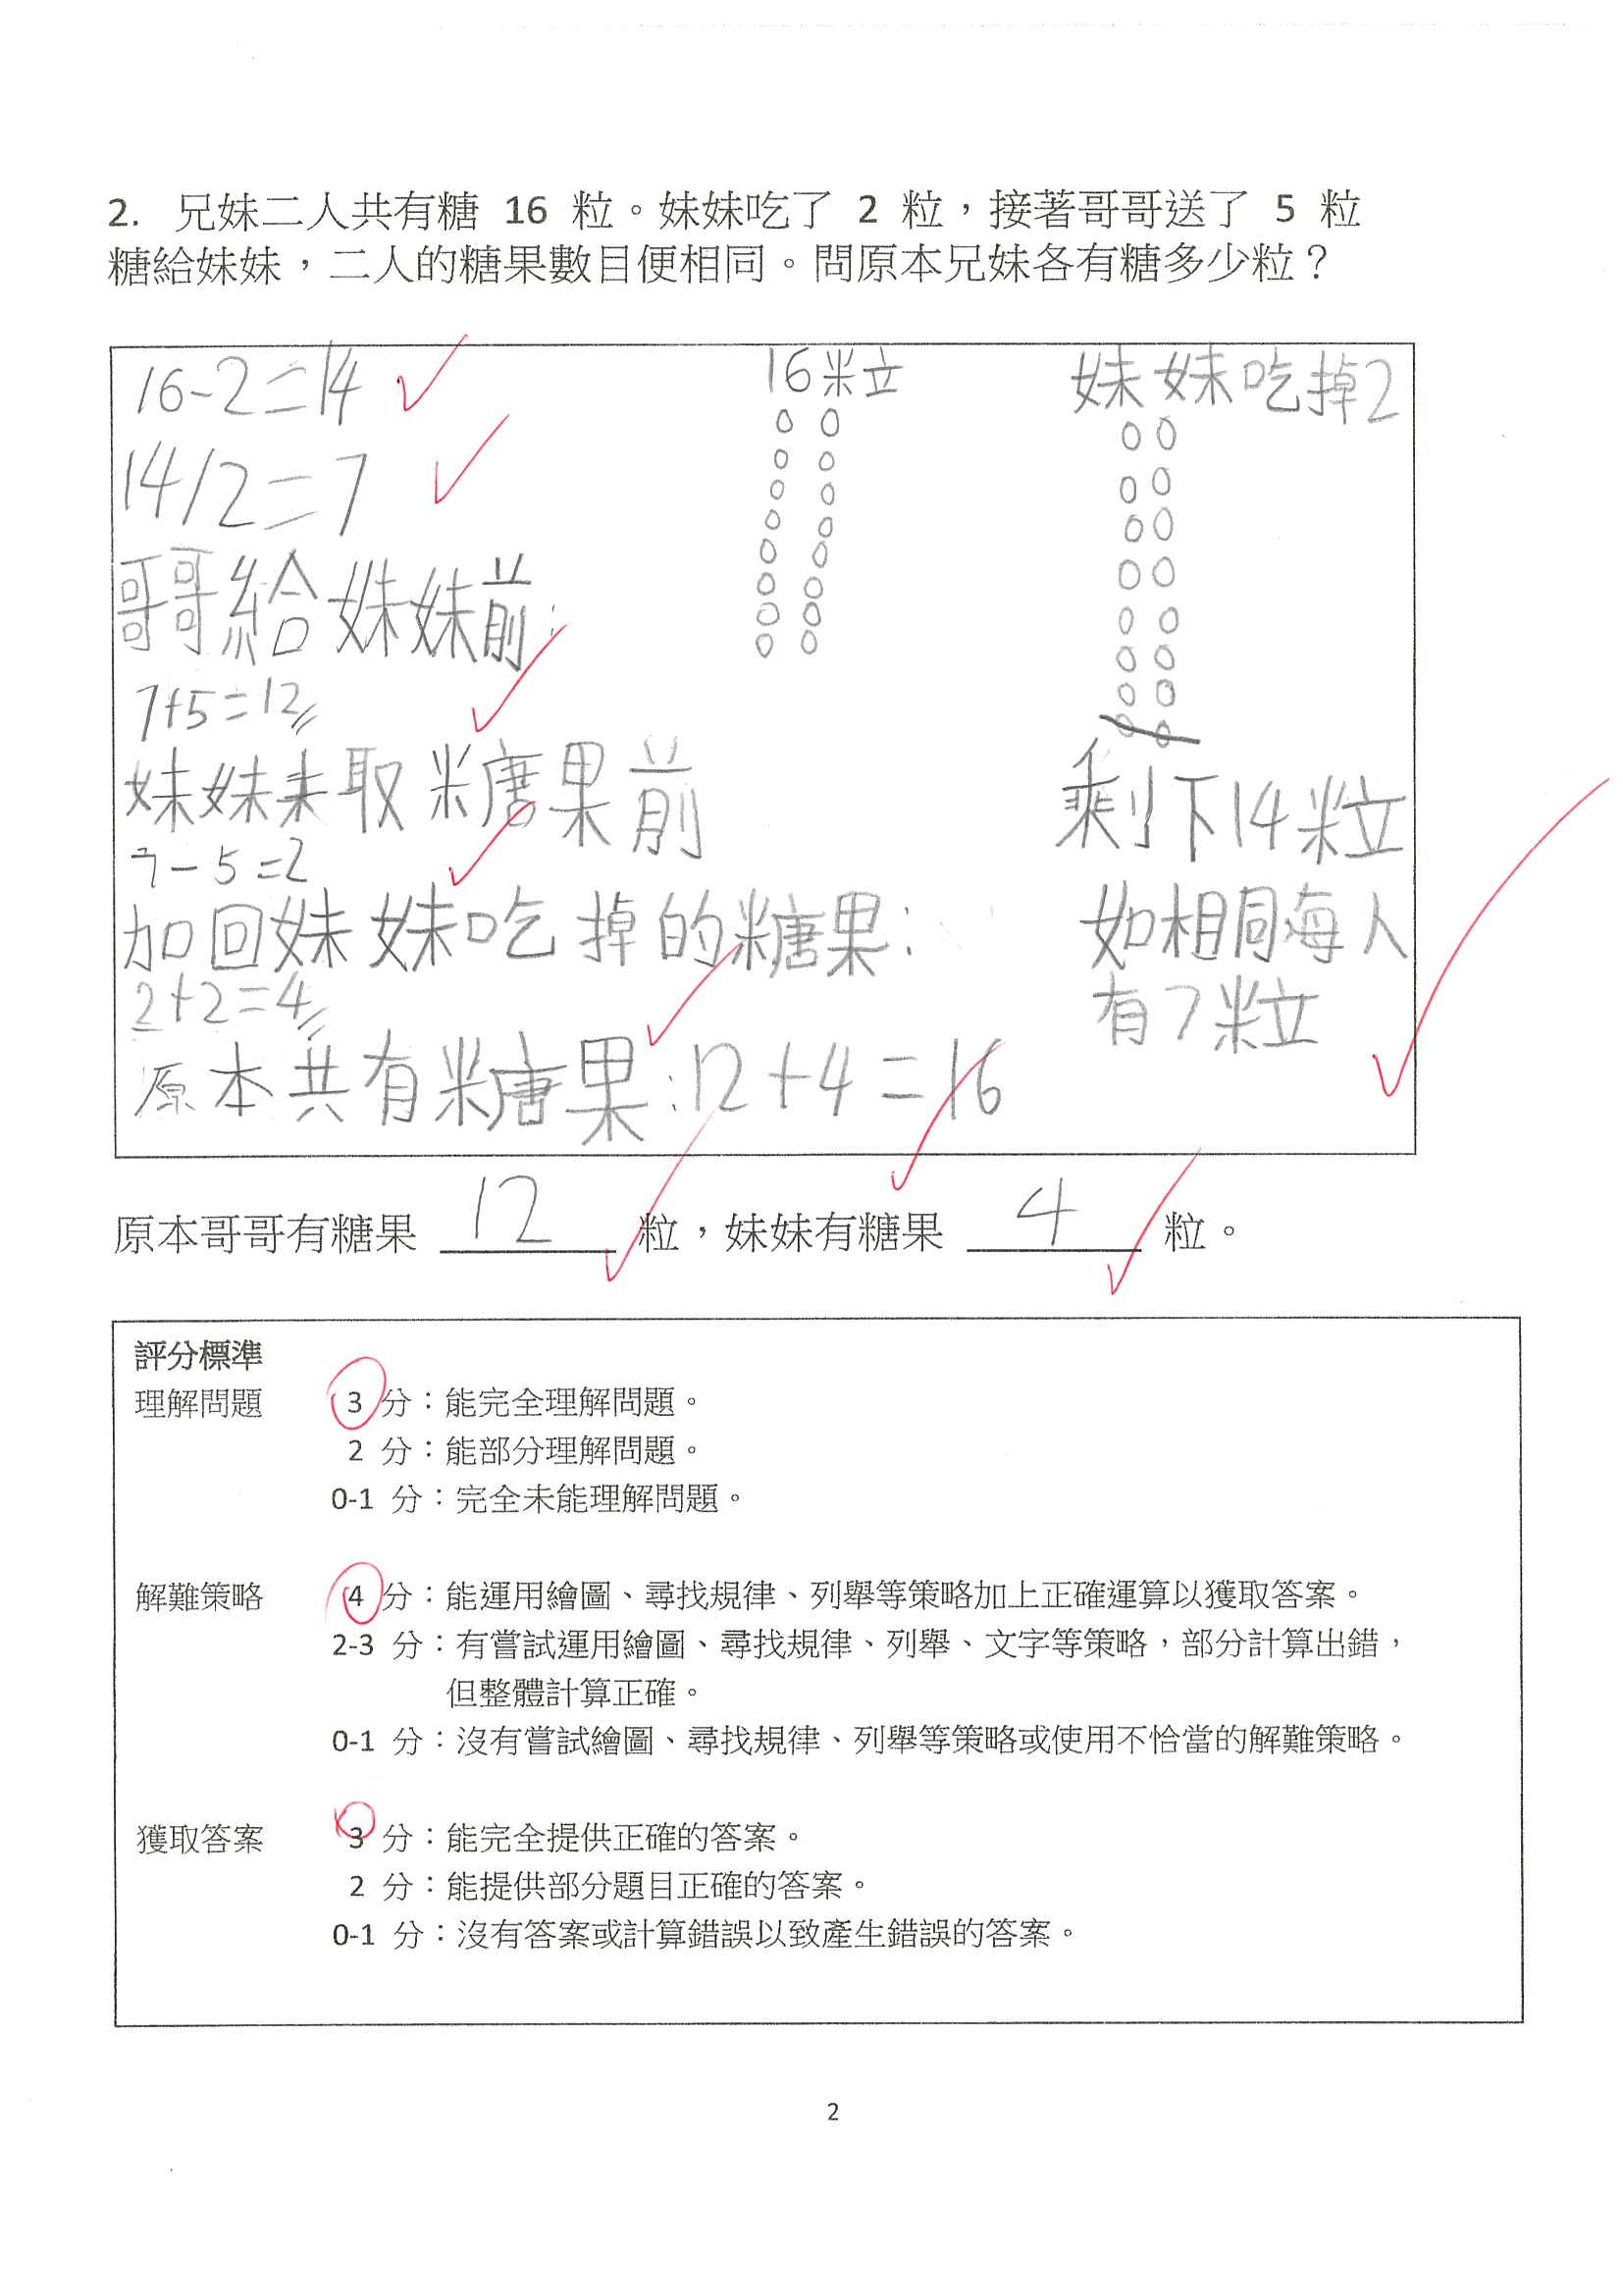 2. 兄妹二人共有糖 16 粒。妹妹吃了 2 粒，接著哥哥送了 5 粒
糖給妹妹，二人的糖果數目便相同。問原本兄妹各有糖多少粒？
16-2=14
14/2=7
哥哥給妹妹前:
7+5=12
妹妹未取糖果前
7-5=2
加回妹妹吃掉的糖果:
2+2=4
原本共有糖果:12+4=16
16粒
妹妹吃掉2
剩下14粒
如相同每人
有7粒
原本哥哥有糖果 12 粒，妹妹有糖果 4 粒。
評分標準
理解問題 3 分：能完全理解問題。
2 分：能部分理解問題。
0-1 分：完全未能理解問題。
解難策略 4 分：能運用繪圖、尋找規律、列舉等策略加上正確運算以獲取答案。
2-3 分：有嘗試運用繪圖、尋找規律、列舉、文字等策略，部分計算出錯，
但整體計算正確。
0-1 分：沒有嘗試繪圖、尋找規律、列舉等策略或使用不恰當的解難策略。
獲取答案 3 分：能完全提供正確的答案。
2 分：能提供部分題目正確的答案。
0-1 分：沒有答案或計算錯誤以致產生錯誤的答案。
2